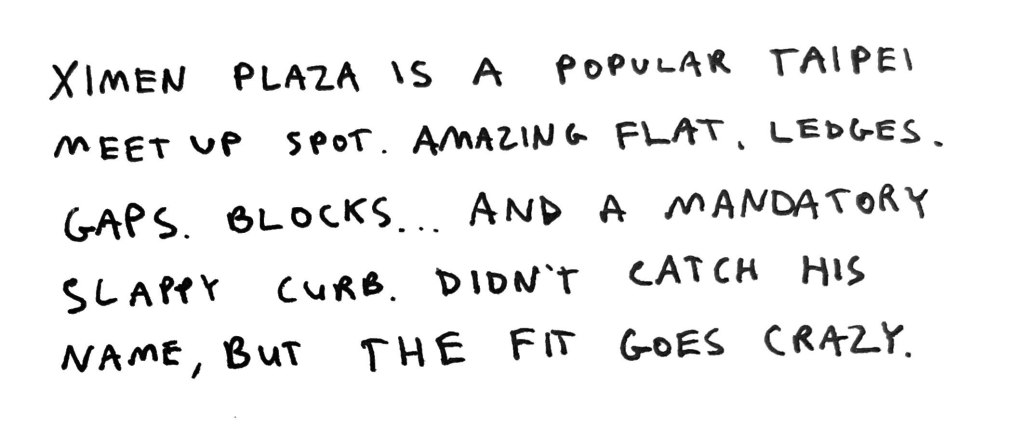 XIMEN PLAZA IS A POPULAR TAIPEI
MEET UP SPOT. AMAZING FLAT. LEDGES.
GAPS. BLOCKS... AND A MANDATORY
SLAPPY CURB. DIDN'T CATCH HIS
NAME, BUT THE FIT GOES CRAZY.